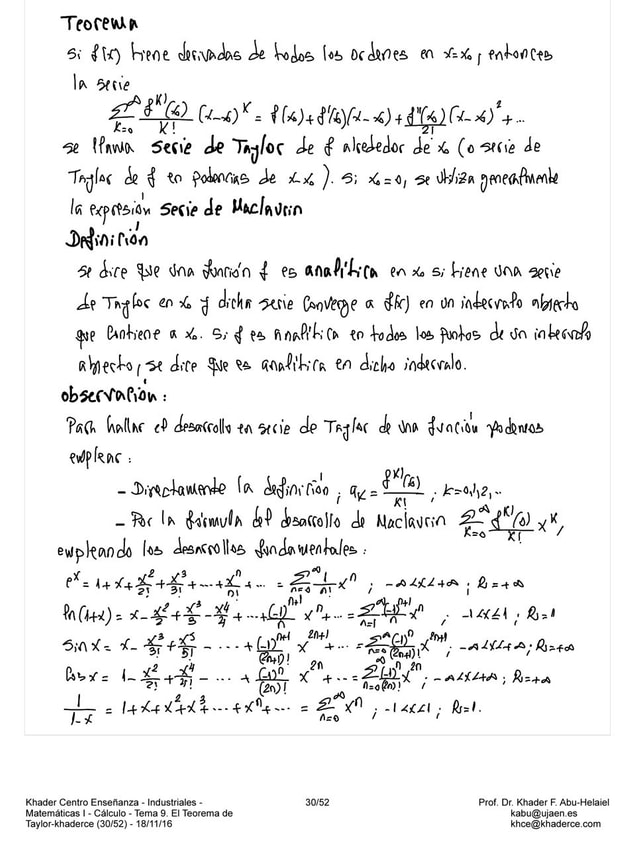 Teorema
Si f(x) tiene derivadas de todos los ordenes en x=x₀, entonces
la serie
∑_{k=0}^{∞} f^{k)}(x₀)/k! (x-x₀)^k = f(x₀)+f'(x₀)(x-x₀)+f''(x₀)/2! (x-x₀)²+...
se llama serie de Taylor de f alrededor de x₀ (o serie de
Taylor de f en potencias de x-x₀). Si x₀=0, se utiliza generalmente
la expresión serie de Maclaurin
Definición
se dice que una función f es analítica en x₀ si tiene una serie
de Taylor en x₀ y dicha serie converge a f(x) en un intervalo abierto
que contiene a x₀. Si f es analítica en todos los puntos de un intervalo
abierto, se dice que es analítica en dicho intervalo.
observación:
Para hallar el desarrollo en serie de Taylor de una función podemos
emplear:
- Directamente la definición, a_k = f^{k)}(x₀)/k! ; k=0,1,2,..
- Por la fórmula del desarrollo de Maclaurin ∑_{k=0}^{∞} f^{k)}(0)/k! x^k,
empleando los desarrollos fundamentales:
e^x = 1+x+x²/2!+x³/3!+...+x^n/n!+... = ∑_{n=0}^{∞} 1/n! x^n ; -∞<x<+∞ ; R=+∞
ln(1+x) = x-x²/2+x³/3-x⁴/4+...+(-1)^{n+1}/n x^n+... = ∑_{n=1}^{∞} (-1)^{n+1}/n x^n ; -1<x≤1 ; R=1
Sin x = x-x³/3!+x⁵/5!-...+(-1)^{n+1}/(2n+1)! x^{2n+1}+... = ∑_{n=0}^{∞} (-1)^n/(2n+1)! x^{2n+1} ; -∞<x<+∞ ; R=+∞
Cos x = 1-x²/2!+x⁴/4!-...+(-1)^n/(2n)! x^{2n}+... = ∑_{n=0}^{∞} (-1)^n/(2n)! x^{2n} ; -∞<x<+∞ ; R=+∞
1/(1-x) = 1+x+x²+x³+...+x^n+... = ∑_{n=0}^{∞} x^n ; -1<x<1 ; R=1.
Khader Centro Enseñanza - Industriales -
Matemáticas I - Cálculo - Tema 9. El Teorema de
Taylor-khaderce (30/52) - 18/11/16
30/52
Prof. Dr. Khader F. Abu-Helaiel
kabu@ujaen.es
khce@khaderce.com